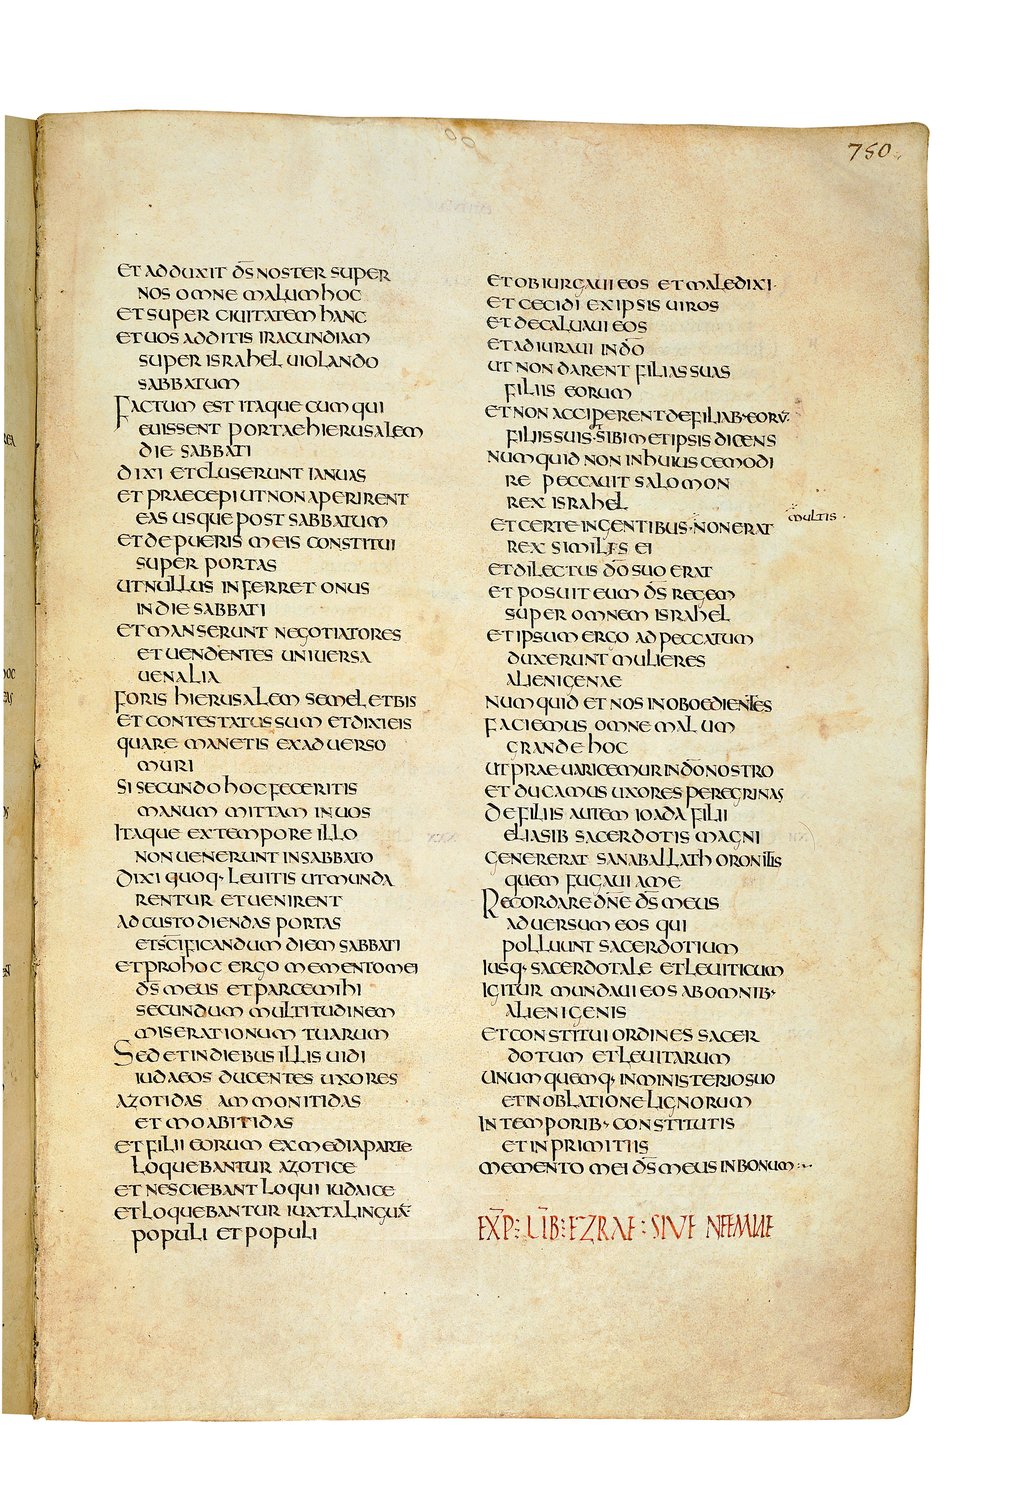 750
ET ADDUXIT D̅S̅ NOSTER SUPER
NOS OMNE MALUM HOC
ET SUPER CIUITATEM HANC
ET UOS ADDITIS IRACUNDIAM
SUPER ISRAHEL UIOLANDO
SABBATUM
FACTUM EST ITAQUE CUM QUI
EUISSENT PORTAE HIERUSALEM
DIE SABBATI
DIXI ET CLUSERUNT IANUAS
ET PRAECEPI UT NON APERIRENT
EAS USQUE POST SABBATUM
ET DE PUERIS MEIS CONSTITUI
SUPER PORTAS
UT NULLUS INFERRET ONUS
IN DIE SABBATI
ET MANSERUNT NEGOTIATORES
ET UENDENTES UNIUERSA
UENALIA
FORIS HIERUSALEM SEMEL ET BIS
ET CONTESTATUS SUM ET DIXI EIS
QUARE MANETIS EX ADUERSO
MURI
SI SECUNDO HOC FECERITIS
MANUM MITTAM IN UOS
ITAQUE EX TEMPORE ILLO
NON UENERUNT IN SABBATO
DIXI QUOQ· LEUITIS UT MUNDA
RENTUR ET UENIRENT
AD CUSTODIENDAS PORTAS
ET SC̅IFICANDUM DIEM SABBATI
ET PRO HOC ERGO MEMENTO MEI
D̅S̅ MEUS ET PARCE MIHI
SECUNDUM MULTITUDINEM
MISERATIONUM TUARUM
SED ET IN DIEBUS ILLIS UIDI
IUDAEOS DUCENTES UXORES
AZOTIDAS AMMONITIDAS
ET MOABITIDAS
ET FILII EORUM EX MEDIA PARTE
LOQUEBANTUR AZOTICE
ET NESCIEBANT LOQUI IUDAICE
ET LOQUEBANTUR IUXTA LINGUA̅
POPULI ET POPULI
ET OBIURGAUI EOS ET MALEDIXI·
ET CECIDI EX IPSIS UIROS
ET DECALUAUI EOS
ET ADIURAUI IN D̅O̅
UT NON DARENT FILIAS SUAS
FILIIS EORUM
ET NON ACCIPERENT DE FILIAB· EORU̅·
FILIIS SUIS· SIBIMETIPSIS DICENS
NUMQUID NON IN HUIUSCEMODI
RE PECCAUIT SALOMON
REX ISRAHEL
ET CERTE IN GENTIBUS· NON ERAT
MULTIS ·
REX SIMILIS EI
ET DILECTUS D̅O̅ SUO ERAT
ET POSUIT EUM D̅S̅ REGEM
SUPER OMNEM ISRAHEL
ET IPSUM ERGO AD PECCATUM
DUXERUNT MULIERES
ALIENIGENAE
NUMQUID ET NOS INOBOEDIENTES
FACIEMUS OMNE MALUM
GRANDE HOC
UT PRAEUARICEMUR IN D̅O̅ NOSTRO
ET DUCAMUS UXORES PEREGRINAS
DE FILIIS AUTEM IOADA FILII
ELIASIB SACERDOTIS MAGNI
GENER ERAT SANABALLATH ORONITIS
QUEM FUGAUI A ME
RECORDARE D̅N̅E̅ D̅S̅ MEUS
ADUERSUM EOS QUI
POLLUUNT SACERDOTIUM
IUSQ· SACERDOTALE ET LEUITICUM
IGITUR MUNDAUI EOS AB OMNIB·
ALIENIGENIS
ET CONSTITUI ORDINES SACER
DOTUM ET LEUITARUM
UNUMQUEMQ· IN MINISTERIO SUO
ET IN OBLATIONE LIGNORUM
IN TEMPORIB· CONSTITUTIS
ET IN PRIMITIIS
MEMENTO MEI D̅S̅ MEUS IN BONUM
EX̅P: LI̅B: EZRAE: SIUE NEEMIAE